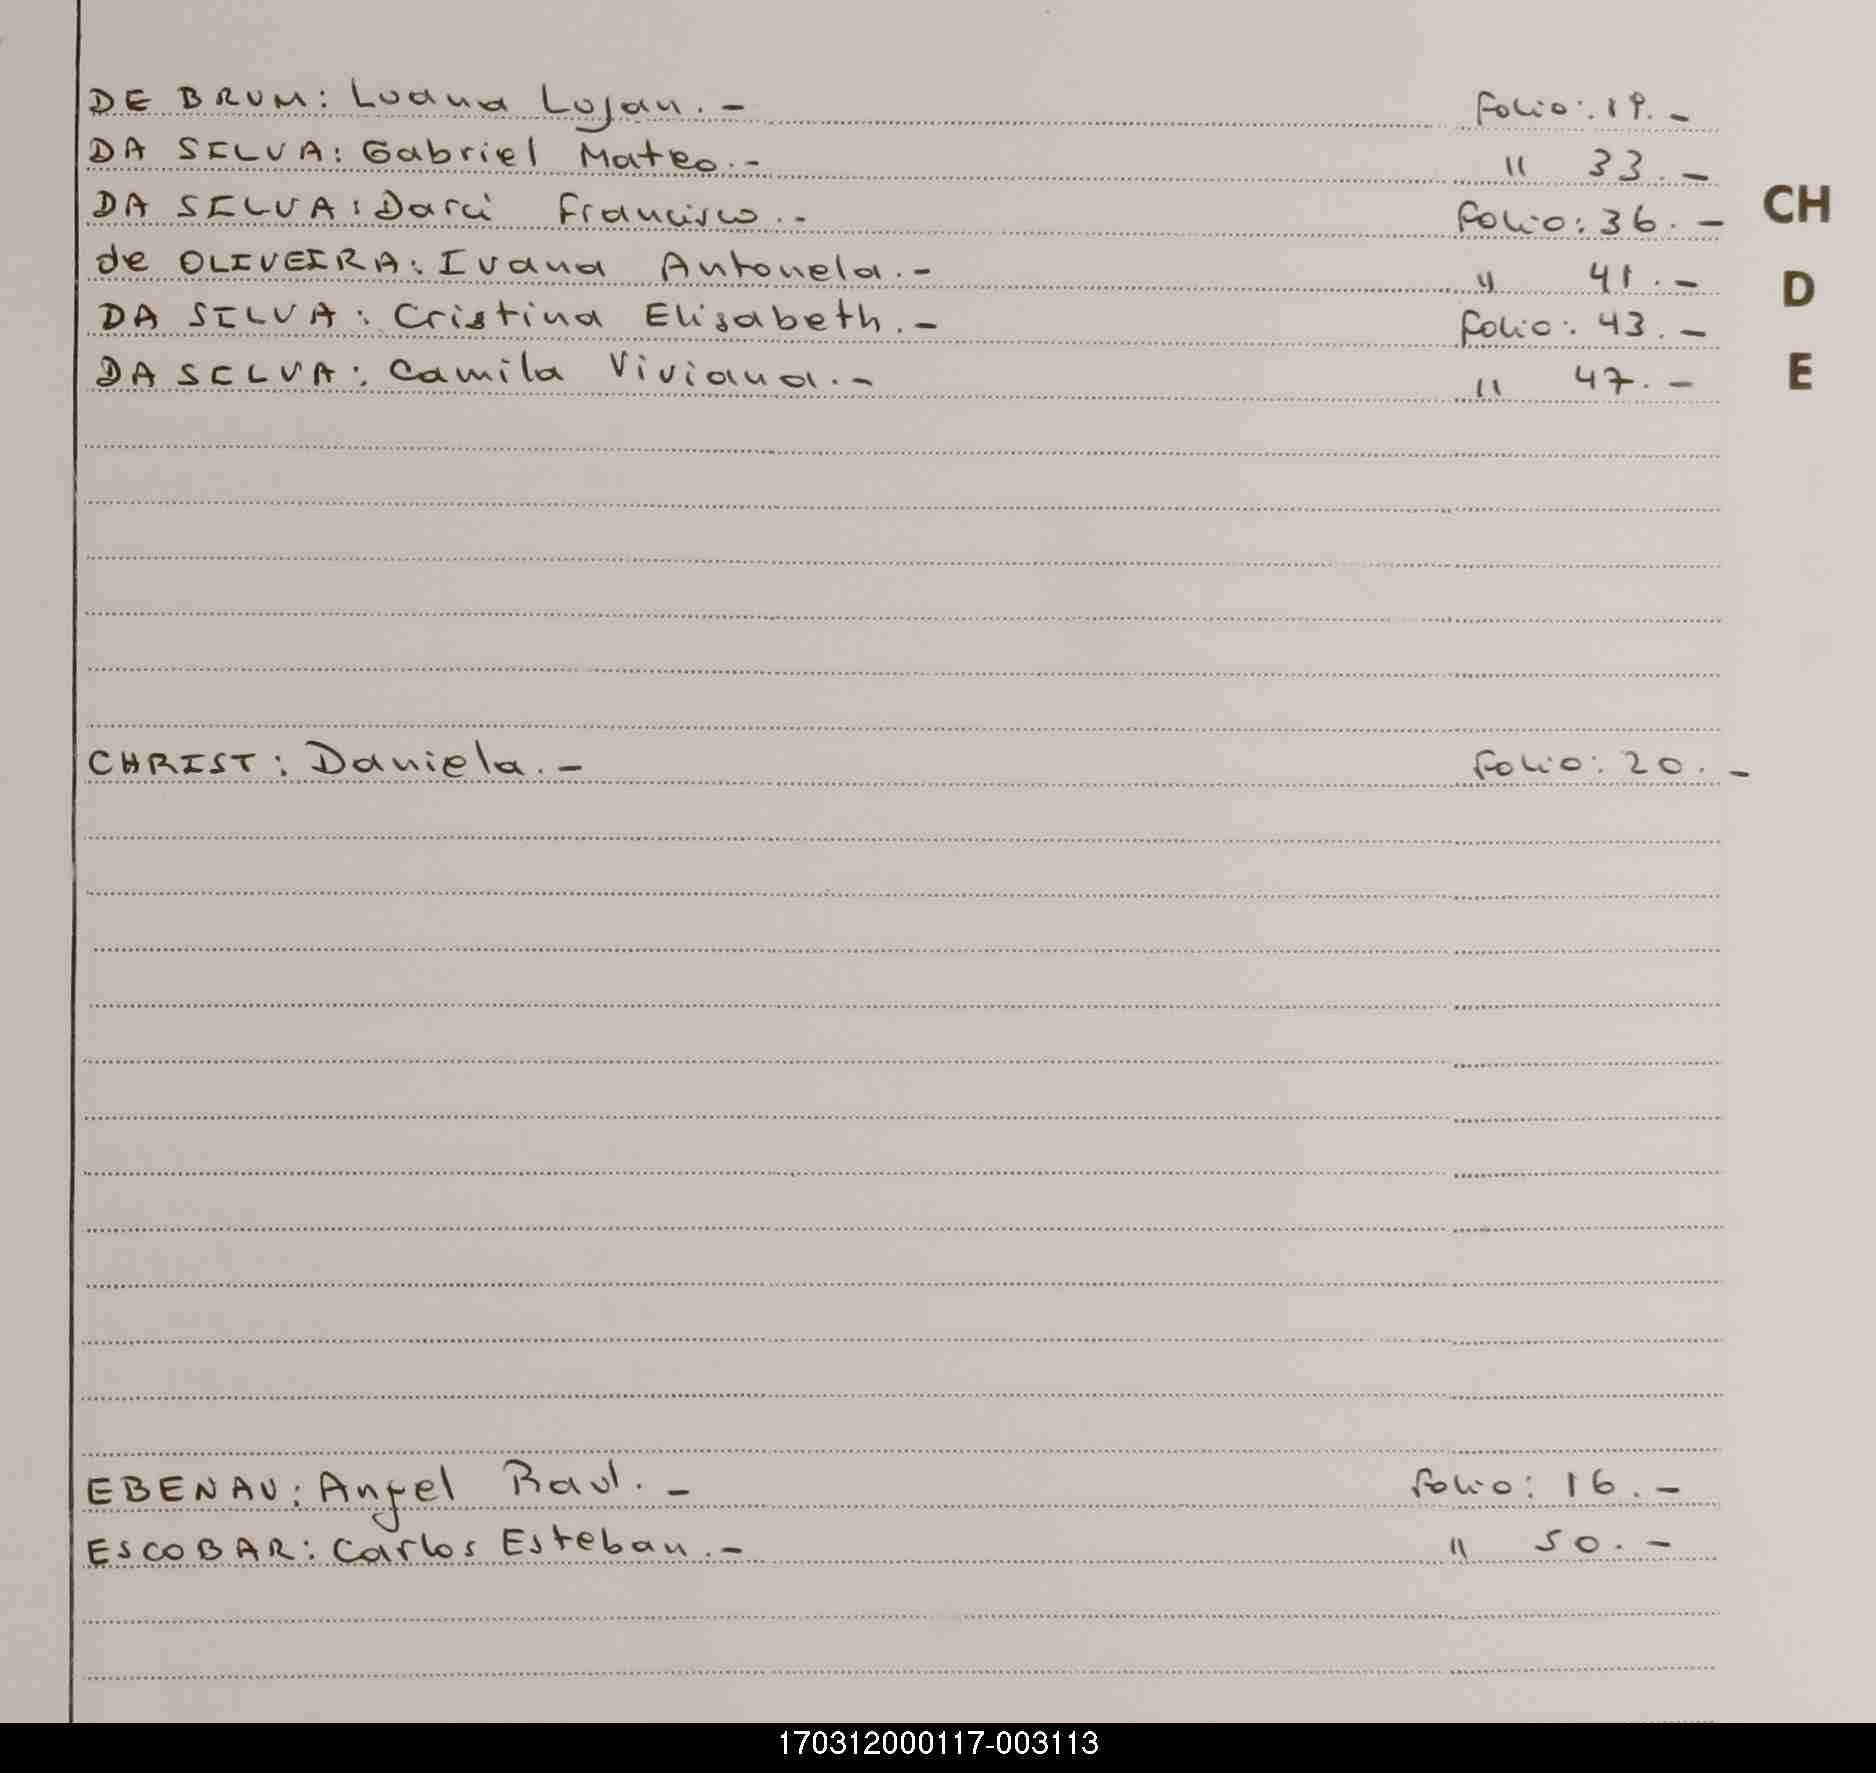 DE BRUM: Luana Lujan.-  Folio: 19.-
DA SILVA: Gabriel Mateo.-  " 33.-
CH
DA SILVA: Darci Francisco.-  Folio: 36.-
de OLIVEIRA: Ivana Antonela.-  " 41.-
D
DA SILVA: Cristina Elisabeth.-  Folio: 43.-
DA SILVA: Camila Viviana.-  " 47.-
E
CHRIST: Daniela.-  Folio: 20.-
EBENAU: Angel Raul.-  Folio: 16.-
ESCOBAR: Carlos Esteban.-  " 50.-
170312000117-003113